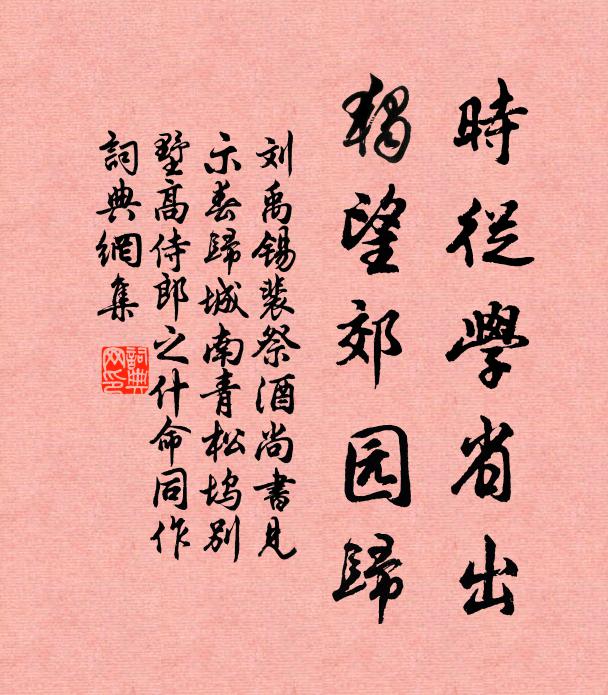 時從學省出
獨望郊园歸
刘禹锡裴祭酒尚書見
示春歸城南青松塢别
墅高侍郎之什命同作
詞典網集
詞典网印